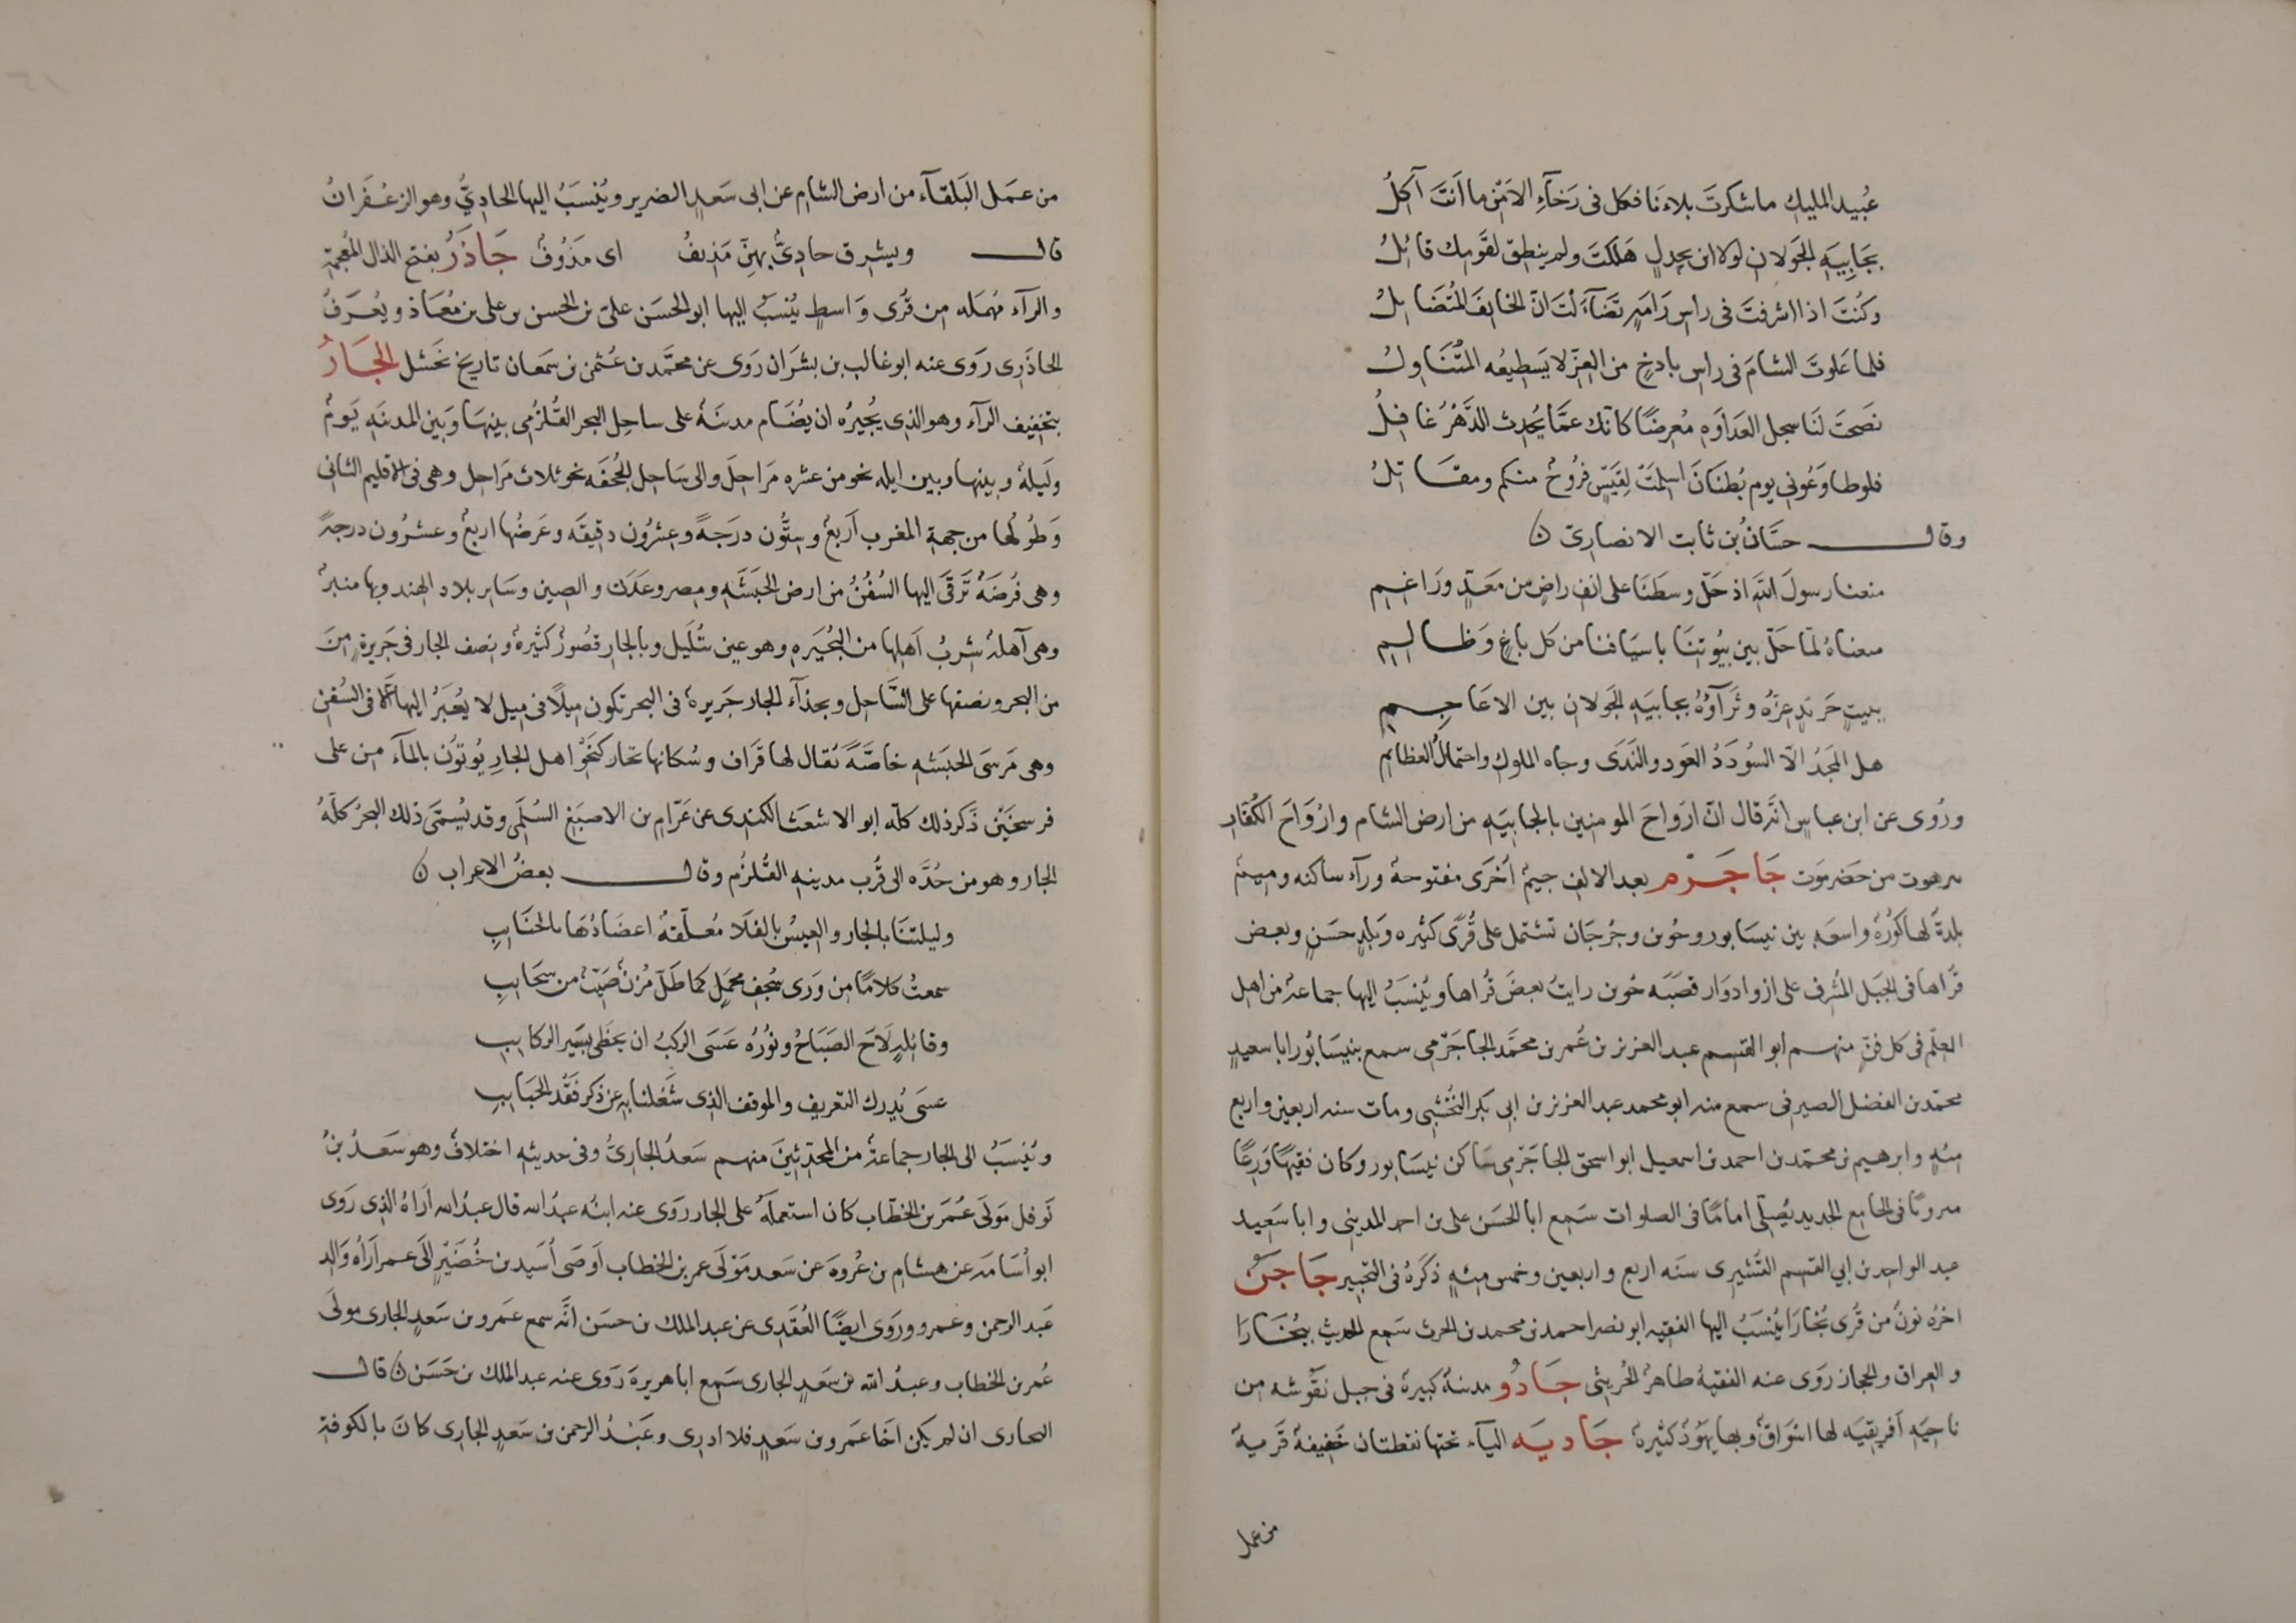 عُبيد المليك ما شكرتَ بلاءنا فكل فى رَخآءِ الامن ما اَنتَ آكلُ
بجَابِيَهِ الجَولان لولا ابن بحدلٍ هَلكتَ ولم ينطق لقَومِك قائلُ
وكُنتَ اذا اشرفتَ فى راس رَامَهٍ تضَآءَلتَ انّ الخايفَ المُتضَائِلُ
فلما عَلوتَ الشامَ فى راس باذخٍ من العِزّ لا يَسطيعُه المتُنَاوِلُ
نصَحتَ لنا سجل العَدَاوَهِ مُعرضًا كانّك عمَّا يُحدِث الدَّهْرُ غافِلُ
فلو طاوَعُونى يوم بُطنَانَ اسلمَتْ لِقَيسٍ فُروُخٌ منكم ومقَاتِلُ
وقال حسَّانُ بن ثابت الانصارىّ ن
منعنا رسولَ اللّهِ اذ حَلّ وسطَنا على انف راضٍ من مَعَدٍّ ورَاغِمِ
منعناهُ لمّا حَلّ بين بيُوتِنَا باسيَافنا من كل باغٍ وَظالِمِ
ببيتٍ حَريدٍ عزّه وثَرَآؤُهُ بجابيَهِ الجَولان بين الاعَاجِمِ
هل المَجدُ الّا السُودَدُ العَود والنَدَى وجاه الملوك واحتمالُ العظايمِ
ورُوى عن ابن عباسٍ انّه قال انّ اروَاحَ المومنين بالجابيَهِ من ارض الشام وارْوَاحَ الكُفَّار
برهوت من حَضرمَوت جَاجَرْم بعد الالف جيمٌ اُخرَى مفتوحةٌ ورآء ساكنه وميمٌ
بلدةٌ لها كوُرةٌ واسعَه بين نيسَابور وجُوين وجُرجَان تشتمل على قُرًى كثيره وبلدٍ حسَنٍ وبعض
قرَاها فى الجبَل المُشرف على ازوادوَار قصبَه جُوين رايتُ بعضَ قُراها ويُنسَبُ اليها جماعةٌ من اهل
العِلم فى كل فنٍّ منهم ابو القسِم عبد العزيز بن عُمر بن محمّد الجاجَرْمى سمع بنيسَابُور ابا سعيدٍ
محمّد بن الفضل الصيرفى سمع منه ابو محمد عبد العزيز بن ابى بكر النُخشَبى ومات سنه اربعين واربع
مئهٍ وابرهيم بن محمّد بن احمد بن اسمعيل ابو اسحق الجاجَرْمى سَاكن نيسَابور وكان فقيهًا وَرعًا
فى الجامع الجديد يُصلّى امامًا فى الصلوات سَمع ابا الحسَن على بن احمد المدينى وابا سَعيد
عبد الواحِد بن ابي القسِم القُشَيرى سنَه اربع واربعين وخمس مئهٍ ذكرَهُ فى التحبير جَاجَنُ
اخرُه نونٌ من قُرى بُخارَا يُنسَبُ اليها الفقيه ابو نصر احمد بن محمد بن الحرث سَمع الحديث ببُخَارَا
والعِراق والحِجاز روَى عنه الفقيهُ طاهرٌ الحُريثى جَادُو مدينةٌ كبيرةٌ فى جبل نَفُوسَه من
ناحِيَهِ اَفريقيَه لها اسْوَاقٌ وبها يهَوُدٌ كثيرةٌ جَاديَه اليآء تحتها نقطتان خَفِيفةٌ قَريةٌ
من عمل
من عَمَل البَلقآء من ارض الشام عن ابى سَعدٍ الضرير ويُنسَبُ اليها الجادِيُّ وهو الزعْفَرانُ
قال ويشرق جادِىٌّ بهنّ مَذِيفُ اى مَذوُفٌ جَاذَرُ بفتح الذال المُعجمَة
والرآء مُهمَله من قُرى وَاسطٍ يُنسَبُ اليها ابو الحسَن علىّ بن الحسن بن على بن مُعَاذ ويُعرَفُ
الجاذَرى رَوَى عنه ابو غالب بن بشرَان روَى عن محمَّد بن عُثمن بن سَمعان تاريخ بَحشل الجَارُ
بتخفِيف الرآء وهو الذى يُجيرُه ان يُضَام مدينَةٌ على ساحِل البحر القُلزُمى بينهَا وَبَين المدينَهِ يَومٌ
ولَيلهٌ وبينها وبين ايله نحو من عشره مَراحلَ والى سَاحِل الجُحفَه نحو ثلاث مَراحل وهى فى الاقليم الثانى
وَطُولُها من جهةِ المغرب اَربعٌ وسِتُّون درَجهً وعِشرُون دقيقَه وعَرضُها اربعٌ وعشرُون درجهً
وهى فُرضَهٌ تَرْقَى اليها السُفُنُ من ارض الحبَشَهِ ومِصر وعَدَن والصين وسَاير بلاد الهند وبها منبرٌ
وهى آهلةٌ شربُ اَهلِها من البُحَيَرهِ وهو عين يُلَيل وبالجار قصُورٌ كثيرهٌ ونصف الجار فى جَزيرةٍ من
من البحر ونصفها على السَّاحِل وبحذآء الجار جَزيرهٌ فى البحر تكون ميلًا فى ميل لا يُعبَرُ اليها الّا فى السُفن
وهى مَرسَى الحبَشهِ خاصَّةً يُقال لها قَرَاف وسُكانها تجار كنَحْوِ اهل الجارِ يُوتوُن بالمآء من على
فرسخَيْن ذكَر ذلك كلّه ابو الاشعَث الكندى عن عَرّامِ بن الاصبَغِ السُلَمى وقد يُسمَّى ذلك البحرُ كلّهُ
الجار وهو من جُدَّه الى قُرب مدينه القُلزُم وقال بعضُ الاعراب ن
وليلتنَا بالجار والعِيسُ بالفَلا مُعلّقهٌ اعضَادُهَا بالجنَايبِ
سمعتُ كلامًا من وَرَى سُجفِ محمَلٍ كما طَلّ مُزنٌ صَيّبٌ من سحَايبِ
وقائلةٍ لَاحَ الصَبَاحُ ونُورُه عَسَى الركبُ ان يحَظَى بسَير الركايِبِ
عسَى يُدرِك التعريف والموقف الذى شُغِلنا بهِ عن ذكر فَقْد الحبَايِبِ
ويُنسَبُ الى الجار جماعةٌ من المحَدّثينَ منهم سَعدٌ الجارىُّ وفى حديثهِ اختلافٌ وهو سَعدُ بنُ
نَوفل مَولَى عُمَر بن الخطّاب كان استعملَهُ على الجار روَى عنه ابنُه عبد الله قال عبدُ الله اُراهُ الذى رَوَى
ابو اُسَامه عن هشام بن عُروهَ عن سَعد مَوْلَى عمر بن الخطاب اَوصَى اُسَيد بن حُضَيرٍ الى عمر اُراهُ وَالد
عَبد الرحمن وعمرو ورَوَى ايضًا العُقَدى عن عبد الملك بن حسَن انَّه سمع عَمرو بن سَعدٍ الجارى مولَى
عُمر بن الخطاب وعبدُ اللّه بن سَعدٍ الجارى سَمع ابا هريرهَ رَوَى عنه عبد الملك بن حَسَن ن قال
البخارى ان لم يكن اخَا عَمرو بن سَعدٍ فلا ادرى وعَبدُ الرحمن بن سَعدٍ الجارى كانَ بالكوفةِ